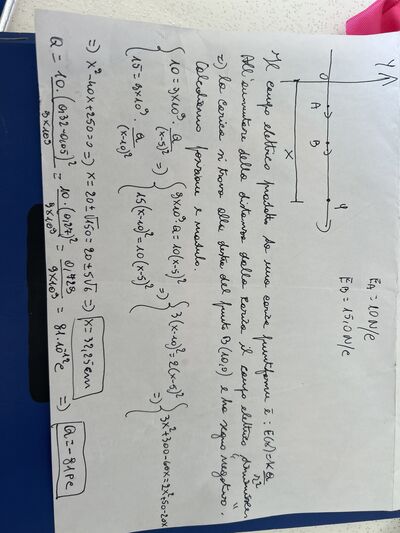 y
0 A B q
x
EA = 10 N/C
EB = 15,0 N/C
Il campo elettrico prodotto da una carica puntiforme è : E(x) = K Q/r²
All'aumentare della distanza dalla carica il campo elettrico "diminuisce"
=> la carica si trova alla destra del punto B (10,0) e ha segno negativo.
Calcoliamo posizione e modulo
{ 10 = 9x10⁹ · Q/(x-5)² => { 9x10⁹ · Q = 10(x-5)² => { 3(x-10)² = 2(x-5)² => { 3x²+300-60x = 2x²+50-20x
{ 15 = 9x10⁹ · Q/(x-10)² { 15(x-10)² = 10(x-5)²
=> x²-40x+250=0 => x = 20±√150 = 20±5√6 => x = 32,25 cm
Q = 10·(0,32-0,05)²/9x10⁹ = 10·(0,27)²/9x10⁹ = 0,729/9x10⁹ = 81·10⁻¹² C => Q = -81 pC